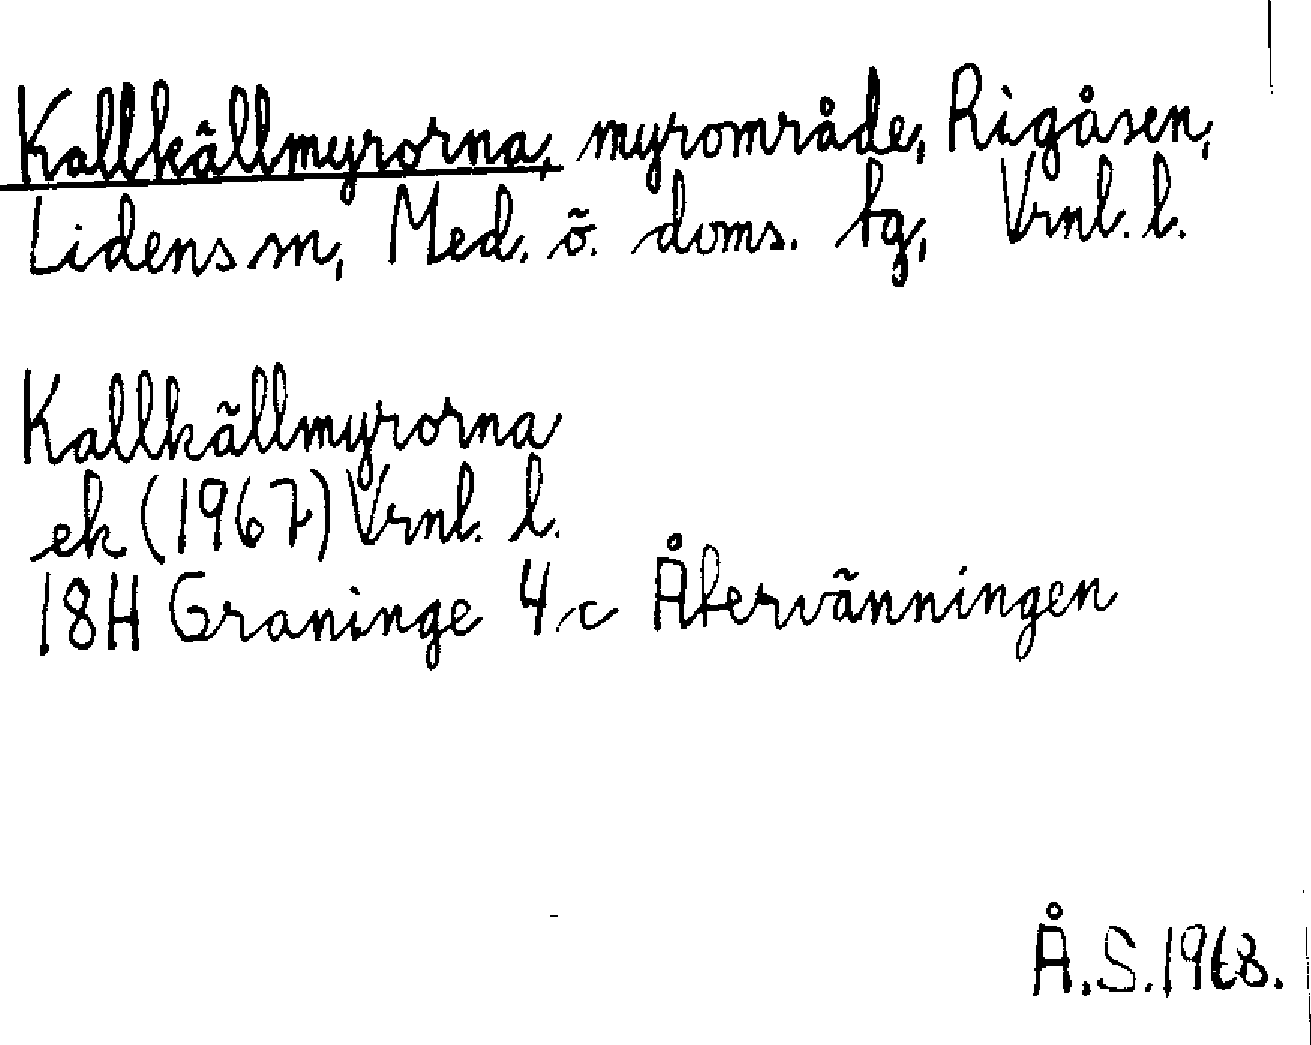 Kallkällmyrorna, myrområde, Rigåsen,
Lidens sn, Med. ö. doms. tg, Vrnl. l.
Kallkällmyrorna
ek (1967) Vrnl. l.
18H Graninge 4 c Återvänningen
Å.S. 1968.